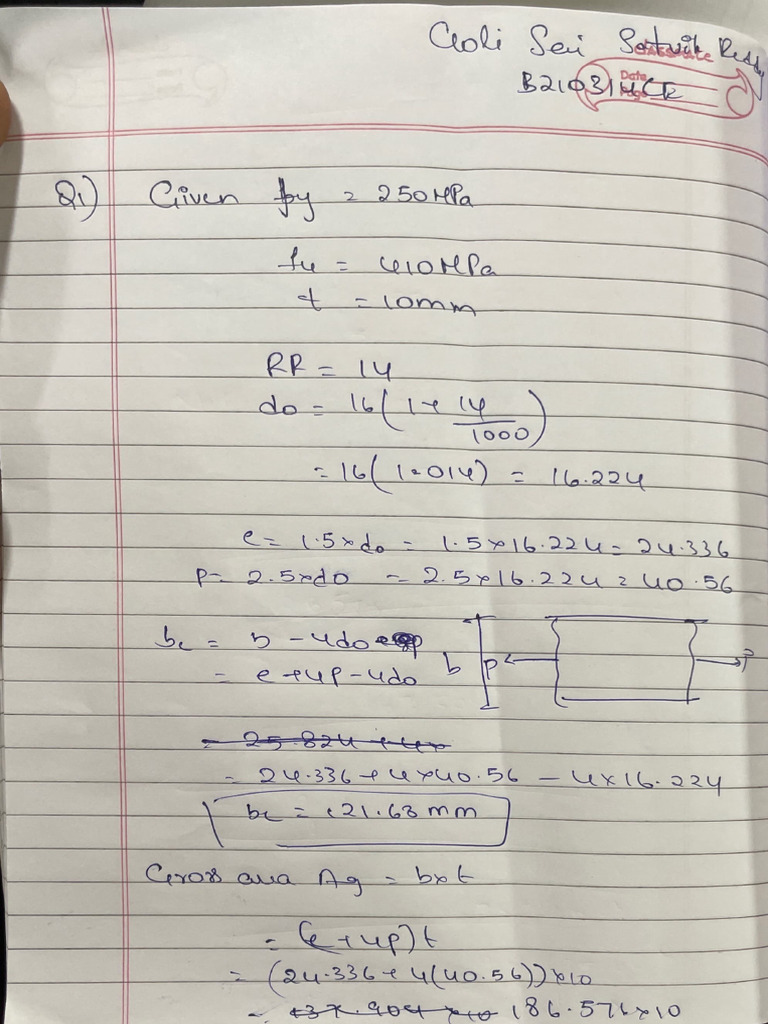 Goli Sai Satwik Reddy
Date
B210314CE
Q1) Given fy = 250MPa
fu = 410MPa
t = 10mm
RR = 14
do = 16(1+ 14/1000)
= 16(1.014) = 16.224
e = 1.5×do = 1.5×16.224 = 24.336
P = 2.5×do = 2.5×16.224 = 40.56
bc = b - 4do
= e+4p-4do
b P P
= 25.824 + 4×
= 24.336 + 4×40.56 - 4×16.224
bc = 121.68 mm
Gross area Ag = b×t
= (e+4p)t
= (24.336+4(40.56))×10
= 186.576×10